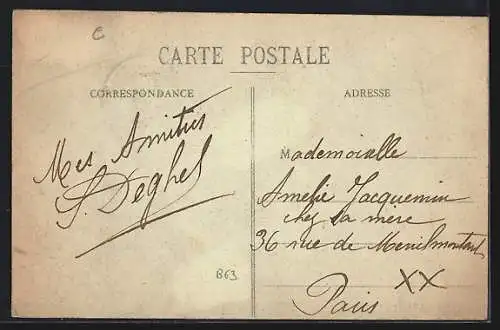 CARTE POSTALE
CORRESPONDANCE
Mes Amitiés
S. Deghel
ADRESSE
Mademoiselle
Amelie Jacquemin
chez sa mère
36 rue de Menilmontant
Paris XX
B63